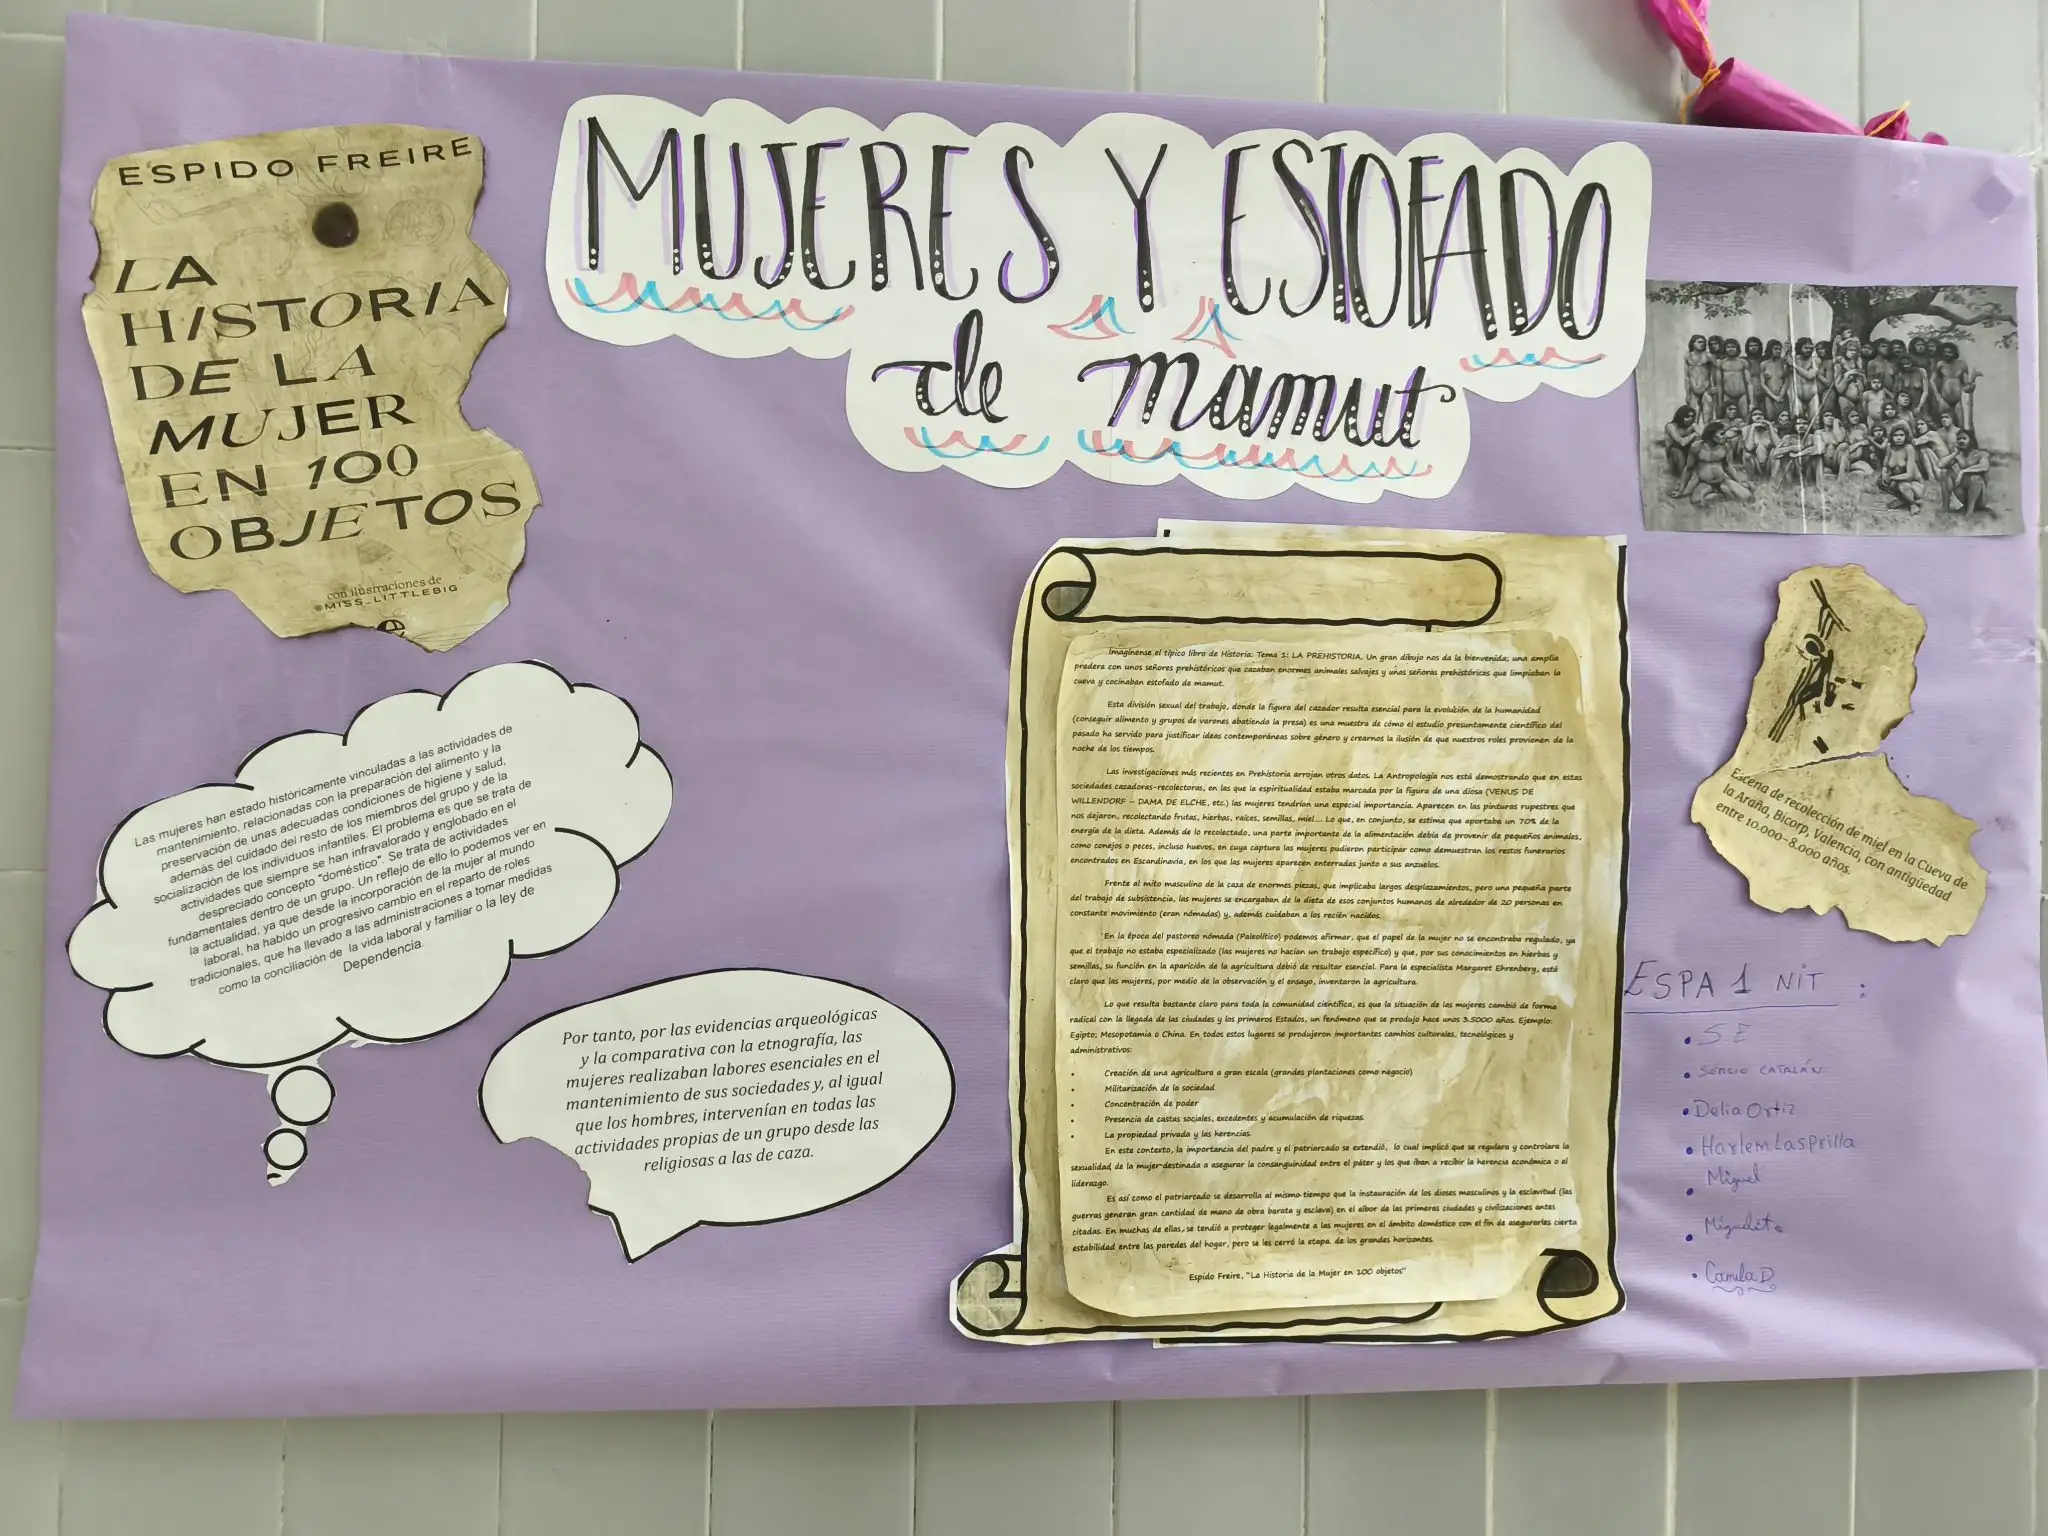 ESPIDO FREIRE
LA
HISTORIA
DE LA
MUJER
EN 100
OBJETOS
con ilustraciones de
@MISS_LITTLEBIG
MUJERES Y ESTOFADO
de mamut
Las mujeres han estado históricamente vinculadas a las actividades de
mantenimiento, relacionadas con la preparación del alimento y la
preservación de unas adecuadas condiciones de higiene y salud,
además del cuidado del resto de los miembros del grupo y de la
socialización de los individuos infantiles. El problema es que se trata de
actividades que siempre se han infravalorado y englobado en el
despreciado concepto "doméstico". Se trata de actividades
fundamentales dentro de un grupo. Un reflejo de ello lo podemos ver en
la actualidad, ya que desde la incorporación de la mujer al mundo
laboral, ha habido un progresivo cambio en el reparto de roles
tradicionales, que ha llevado a las administraciones a tomar medidas
como la conciliación de la vida laboral y familiar o la ley de
Dependencia.
Por tanto, por las evidencias arqueológicas
y la comparativa con la etnografía, las
mujeres realizaban labores esenciales en el
mantenimiento de sus sociedades y, al igual
que los hombres, intervenían en todas las
actividades propias de un grupo desde las
religiosas a las de caza.
Imagínense el típico libro de Historia: Tema 1: LA PREHISTORIA. Un gran dibujo nos da la bienvenida; una amplia
pradera con unos señores prehistóricos que cazaban enormes animales salvajes y unas señoras prehistóricas que limpiaban la
cueva y cocinaban estofado de mamut.
Esta división sexual del trabajo, donde la figura del cazador resulta esencial para la evolución de la humanidad
(conseguir alimento y grupos de varones abatiendo la presa) es una muestra de cómo el estudio presuntamente científico del
pasado ha servido para justificar ideas contemporáneas sobre género y crearnos la ilusión de que nuestros roles provienen de la
noche de los tiempos.
Las investigaciones más recientes en Prehistoria arrojan otros datos. La Antropología nos está demostrando que en estas
sociedades cazadoras-recolectoras, en las que la espiritualidad estaba marcada por la figura de una diosa (VENUS DE
WILLENDORF – DAMA DE ELCHE, etc.) las mujeres tendrían una especial importancia. Aparecen en las pinturas rupestres que
nos dejaron, recolectando frutas, hierbas, raíces, semillas, miel.... Lo que, en conjunto, se estima que aportaba un 70% de la
energía de la dieta. Además de lo recolectado, una parte importante de la alimentación debía de provenir de pequeños animales,
como conejos o peces, incluso huevos, en cuya captura las mujeres pudieron participar como demuestran los restos funerarios
encontrados en Escandinavia, en los que las mujeres aparecen enterradas junto a sus anzuelos.
Frente al mito masculino de la caza de enormes piezas, que implicaba largos desplazamientos, pero una pequeña parte
del trabajo de subsistencia, las mujeres se encargaban de la dieta de esos conjuntos humanos de alrededor de 20 personas en
constante movimiento (eran nómadas) y, además cuidaban a los recién nacidos.
En la época del pastoreo nómada (Paleolítico) podemos afirmar, que el papel de la mujer no se encontraba regulado, ya
que el trabajo no estaba especializado (las mujeres no hacían un trabajo específico) y que, por sus conocimientos en hierbas y
semillas, su función en la aparición de la agricultura debió de resultar esencial. Para la especialista Margaret Ehrenberg, está
claro que las mujeres, por medio de la observación y el ensayo, inventaron la agricultura.
Lo que resulta bastante claro para toda la comunidad científica, es que la situación de las mujeres cambió de forma
radical con la llegada de las ciudades y los primeros Estados, un fenómeno que se produjo hace unos 3.5000 años. Ejemplo:
Egipto; Mesopotamia o China. En todos estos lugares se produjeron importantes cambios culturales, tecnológicos y
administrativos:
• Creación de una agricultura a gran escala (grandes plantaciones como negocio)
• Militarización de la sociedad
• Concentración de poder
• Presencia de castas sociales, excedentes y acumulación de riquezas.
• La propiedad privada y las herencias.
En este contexto, la importancia del padre y el patriarcado se extendió, lo cual implicó que se regulara y controlara la
sexualidad de la mujer destinada a asegurar la consanguinidad entre el páter y los que iban a recibir la herencia económica o el
liderazgo.
Es así como el patriarcado se desarrolla al mismo tiempo que la instauración de los dioses masculinos y la esclavitud (las
guerras generan gran cantidad de mano de obra barata y esclava) en el albor de las primeras ciudades y civilizaciones antes
citadas. En muchas de ellas, se tendió a proteger legalmente a las mujeres en el ámbito doméstico con el fin de asegurarles cierta
estabilidad entre las paredes del hogar, pero se les cerró la etapa de los grandes horizontes.
Espido Freire, "La Historia de la Mujer en 100 objetos"
Escena de recolección de miel en la Cueva de
la Araña, Bicorp, Valencia, con antigüedad
entre 10.000-8.000 años.
ESPA 1 NIT :
• S.E
• SERGIO CATALÁN
• Delia Ortiz
• Harlem Lasprilla
• Miguel
• Miguelito
• Camila D